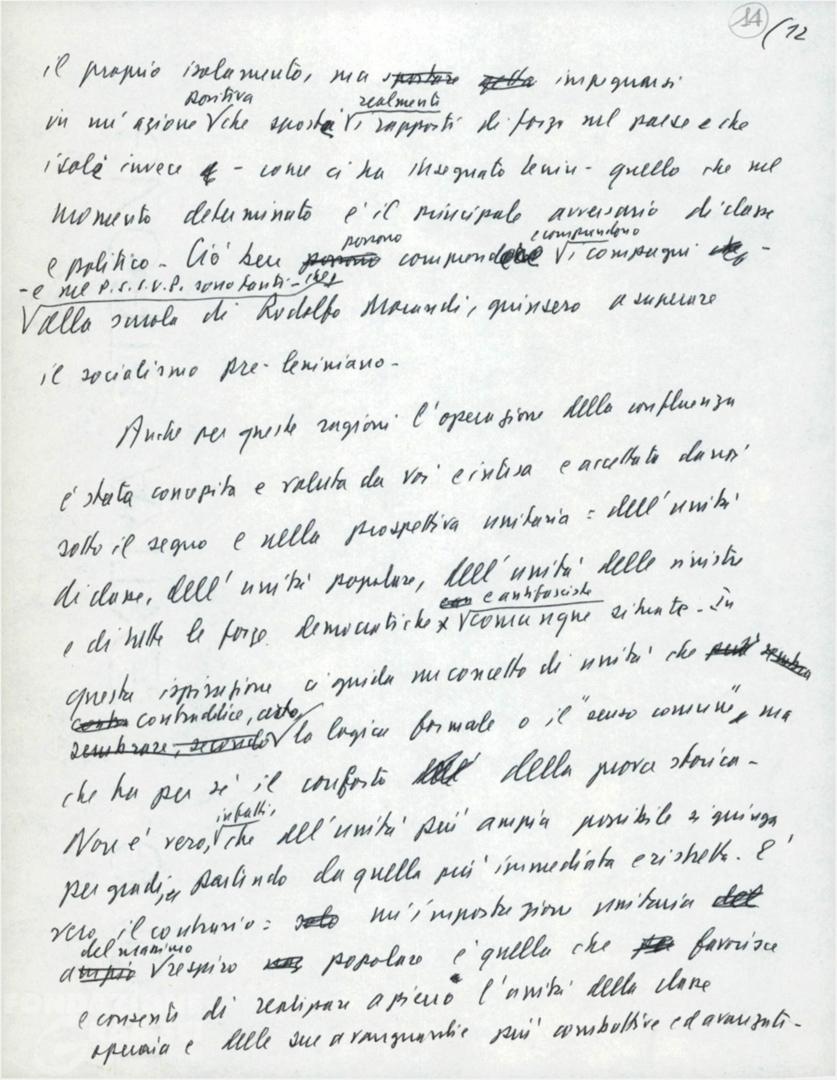 14 (12
il proprio isolamento, ma impegnarsi
positiva realmente
in un'azione che sposti i rapporti di forze nel paese e che
isoli invece - come ci ha insegnato Lenin - quello che nel
momento determinato è il principale avversario di classe
possono e comprendono
e politico - Ciò ben i compagni -
- e nel P.S.I.U.P. sono tanti - che,
alla scuola di Rodolfo Morandi, giunsero a superare
il socialismo pre-leniniano -
Anche per queste ragioni l'operazione della confluenza
è stata concepita e voluta da voi e intesa e accettata da noi
sotto il segno e nella prospettiva unitaria: dell'unità
di classe, dell'unità popolare, dell'unità delle sinistre
e antifasciste
e di tutte le forze democratiche comunque situate - In
questa ispirazione ci guida un concetto di unità che
contraddice, certo,
la logica formale o il "senso comune", ma
che ha per sé il conforto della prova storica -
infatti,
Non è vero, che all'unità più ampia possibile si giunga
per gradi, partendo da quella più immediata e ristretta. E'
vero il contrario: un'impostazione unitaria
del massimo
respiro popolare è quella che favorisce
e consente di realizzare a pieno l'unità della classe
operaia e delle sue avanguardie più combattive ed avanzate -